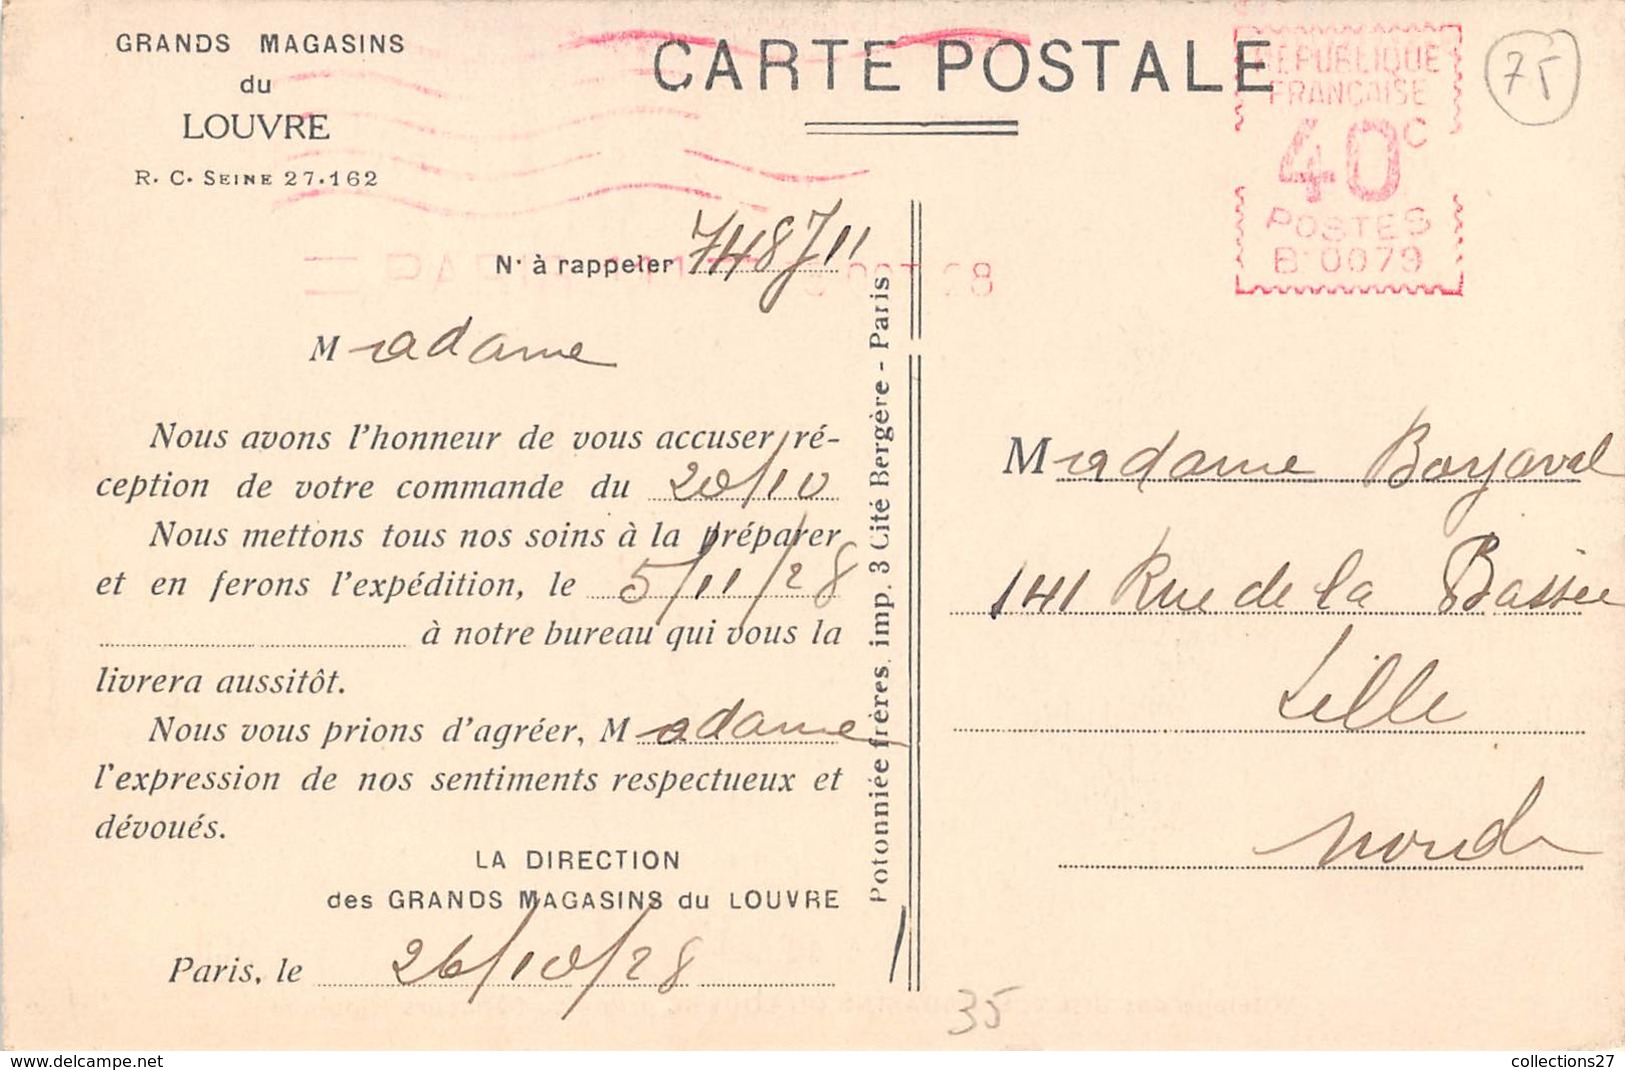 GRANDS MAGASINS
du
LOUVRE
R. C. SEINE 27.162
CARTE POSTALE
RÉPUBLIQUE
FRANÇAISE
40c
POSTES
B 0079
75
N° à rappeler 748711
Madame
Nous avons l'honneur de vous accuser ré-
ception de votre commande du 20/10
Nous mettons tous nos soins à la préparer
et en ferons l'expédition, le 5/11/28
à notre bureau qui vous la
livrera aussitôt.
Nous vous prions d'agréer, Madame
l'expression de nos sentiments respectueux et
dévoués.
LA DIRECTION
des GRANDS MAGASINS du LOUVRE
Paris, le 26/10/28
Potonniée frères, imp. 3 Cité Bergère - Paris
Madame Boyaval
141 Rue de la Bassée
Lille
Nord
35
collections27